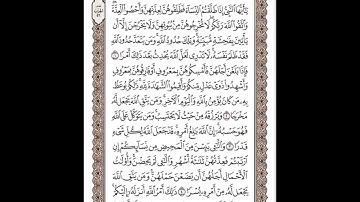 يَٰٓأَيُّهَا ٱلنَّبِىُّ إِذَا طَلَّقْتُمُ ٱلنِّسَآءَ فَطَلِّقُوهُنَّ لِعِدَّتِهِنَّ وَأَحْصُوا۟ ٱلْعِدَّةَ
وَٱتَّقُوا۟ ٱللَّهَ رَبَّكُمْ لَا تُخْرِجُوهُنَّ مِنۢ بُيُوتِهِنَّ وَلَا يَخْرُجْنَ إِلَّآ أَن
يَأْتِينَ بِفَٰحِشَةٍ مُّبَيِّنَةٍ وَتِلْكَ حُدُودُ ٱللَّهِ وَمَن يَتَعَدَّ حُدُودَ ٱللَّهِ
فَقَدْ ظَلَمَ نَفْسَهُۥ لَا تَدْرِى لَعَلَّ ٱللَّهَ يُحْدِثُ بَعْدَ ذَٰلِكَ أَمْرًا ١
فَإِذَا بَلَغْنَ أَجَلَهُنَّ فَأَمْسِكُوهُنَّ بِمَعْرُوفٍ أَوْ فَارِقُوهُنَّ بِمَعْرُوفٍ
وَأَشْهِدُوا۟ ذَوَىْ عَدْلٍ مِّنكُمْ وَأَقِيمُوا۟ ٱلشَّهَٰدَةَ لِلَّهِ ذَٰلِكُمْ يُوعَظُ
بِهِۦ مَن كَانَ يُؤْمِنُ بِٱللَّهِ وَٱلْيَوْمِ ٱلْءَاخِرِ وَمَن يَتَّقِ ٱللَّهَ يَجْعَل لَّهُۥ
مَخْرَجًا ٢ وَيَرْزُقْهُ مِنْ حَيْثُ لَا يَحْتَسِبُ وَمَن يَتَوَكَّلْ عَلَى ٱللَّهِ
فَهُوَ حَسْبُهُۥٓ إِنَّ ٱللَّهَ بَٰلِغُ أَمْرِهِۦ قَدْ جَعَلَ ٱللَّهُ لِكُلِّ شَىْءٍ
قَدْرًا ٣ وَٱلَّٰٓـِٔى يَئِسْنَ مِنَ ٱلْمَحِيضِ مِن نِّسَآئِكُمْ إِنِ
ٱرْتَبْتُمْ فَعِدَّتُهُنَّ ثَلَٰثَةُ أَشْهُرٍ وَٱلَّٰٓـِٔى لَمْ يَحِضْنَ وَأُو۟لَٰتُ
ٱلْأَحْمَالِ أَجَلُهُنَّ أَن يَضَعْنَ حَمْلَهُنَّ وَمَن يَتَّقِ ٱللَّهَ
يَجْعَل لَّهُۥ مِنْ أَمْرِهِۦ يُسْرًا ٤ ذَٰلِكَ أَمْرُ ٱللَّهِ أَنزَلَهُۥٓ إِلَيْكُمْ